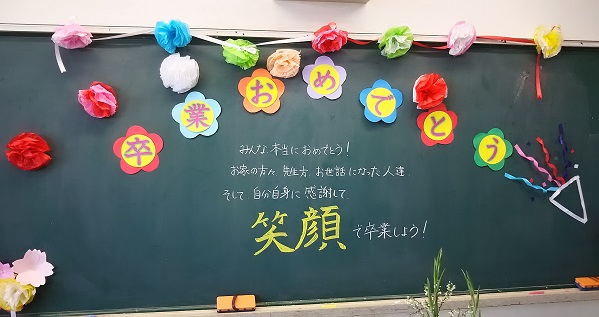 卒業おめでとう
みんな、本当におめでとう！
お家の方々、先生方、お世話になった人達、
そして、自分自身に感謝して、
笑顔で卒業しよう！